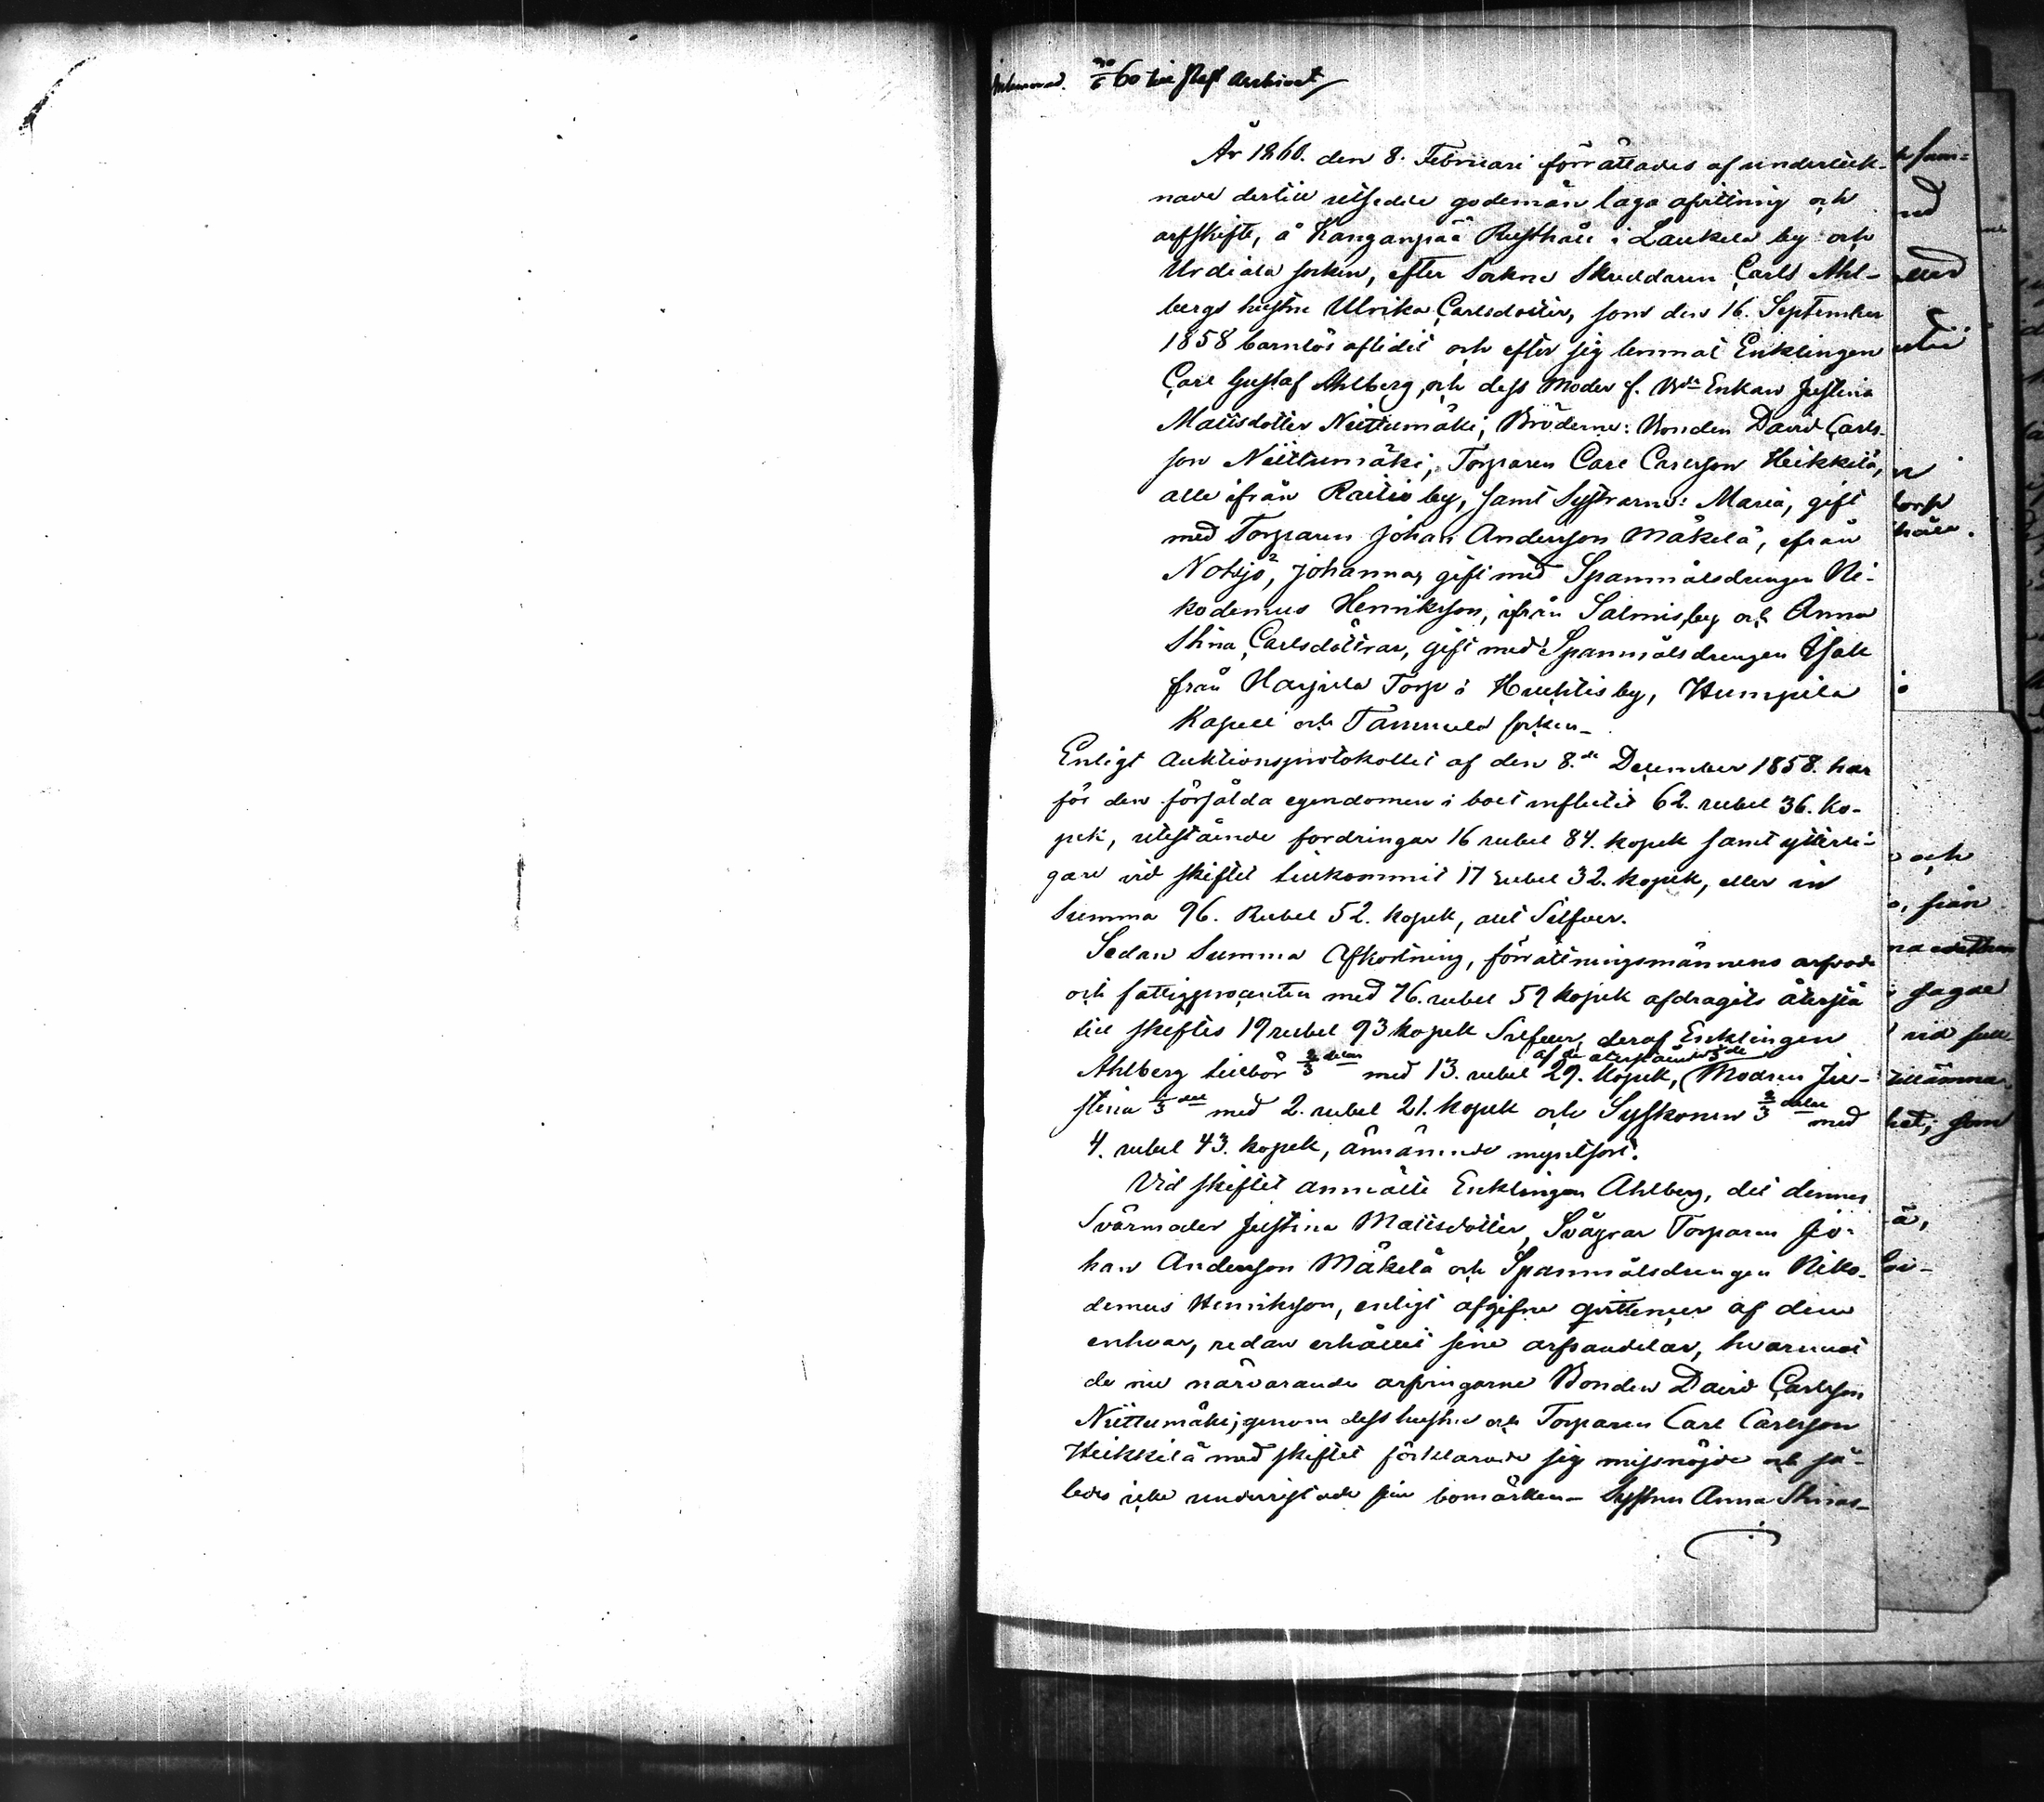 60 till Archivet
År 1860. den 8. Februari förrättades af underteck-
nade dertill utsedde godemän, laga afvittring och
arfskifte, å Kanganpää Rusthåll i Laukela by och
Urdiala socken, efter Sockne Skräddaren Carls Ahl-
bergs hustru Ulrika Carlsdotter, som den 16. September
1858 barnlös aflidit och efter sig lemnat Enklingen
Carl Gustaf Ahlberg, och dess Moder f. Enkan Justina
Mattsdotter Niittumäki; Bröderne: Bonden David Carls-
son Niittumäki; Torparen Carl Carlsson Heikkilä,
alle ifrån Raitio by, samt Systrarne: Maria, gift
med Torparen Johan Andersson Mäkelä, ifrån
Notsjö, Johanna, gift med Spannmålsdrengen Ni-
kodemus Henriksson, ifrån Salmis by och Anna
Stina, Carlsdöttrar, gift med Spannmålsdrengen Isak
från Harjula Torp i Huhtis by, Humpila
Kapell och Tammela socken_
Enligt Auktionsprotokollet af den 8.de December 1858. har
för den försålda egendomen i boet influtit 62. rubel 36. ko-
pek, utestående fordringar 16 rubel 84. kopek samt ytterli-
gare vid skiftet tillkommit 17 rubel 32. kopek, eller in
Summa 96. Rubel 52. kopek, allt Silfver.
Sedan Summa Afkortning, förrättningsmännens arfvode
och fattigprocenten med 76. rubel 59 kopek afdragits återstå
till skiftes 19 rubel 93 kopek Silfver, deraf Enklingen
af de återstående de
Ahlberg tillhör 2/3 delar med 13. rubel 29. kopek, Modren Ju-
stina 1/3 del med 2. rubel 21. kopek och Syskonen 2/3 delar med
4. rubel 43. kopek, ännämnde myntsort.
Vid skiftet anmälte Enklingen Ahlberg, det dennes
Svärmoder Justina Mattsdotter, Svågrar Torparen Jo-
han Andersson Mäkelä och Spannmålsdrengen Niko-
demus Henriksson, enligt afgifne qvittencer af dem
enhvar, redan erhållit sine arfsandelar, hvaremot
de nu närvarande arfvingarne Bonden David Carlsson
Niittumäki, genom dess hustru och Torparen Carl Carlsson
Heikkilä med skiftet förklarade sig missnöjde och så-
ledes icke underristade sin bomärken_ Systren Anna Stinas_
och
från
som